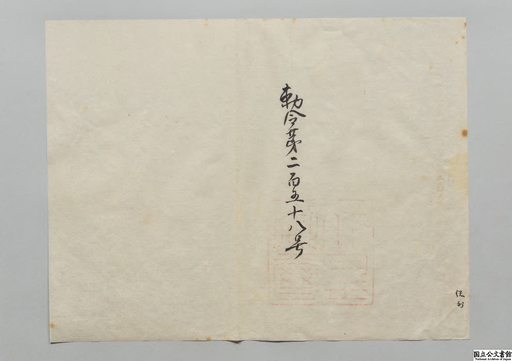 勅令第二百五十八号
国立公文書館
National Archives of Japan